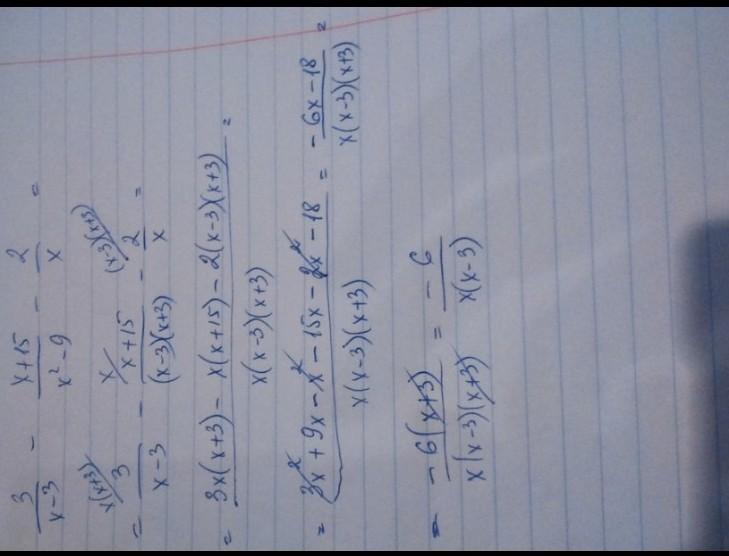 3/(x-3) - (x+15)/(x²-9) - 2/x =
= 3/(x-3) - (x+15)/((x-3)(x+3)) - 2/x = x(x+3) x (x-3)(x+3)
= (3x(x+3) - x(x+15) - 2(x-3)(x+3))/(x(x-3)(x+3)) =
= (3x² + 9x - x² - 15x - 2x² - 18)/(x(x-3)(x+3)) = (-6x - 18)/(x(x-3)(x+3)) =
= (-6(x+3))/(x(x-3)(x+3)) = - 6/(x(x-3))